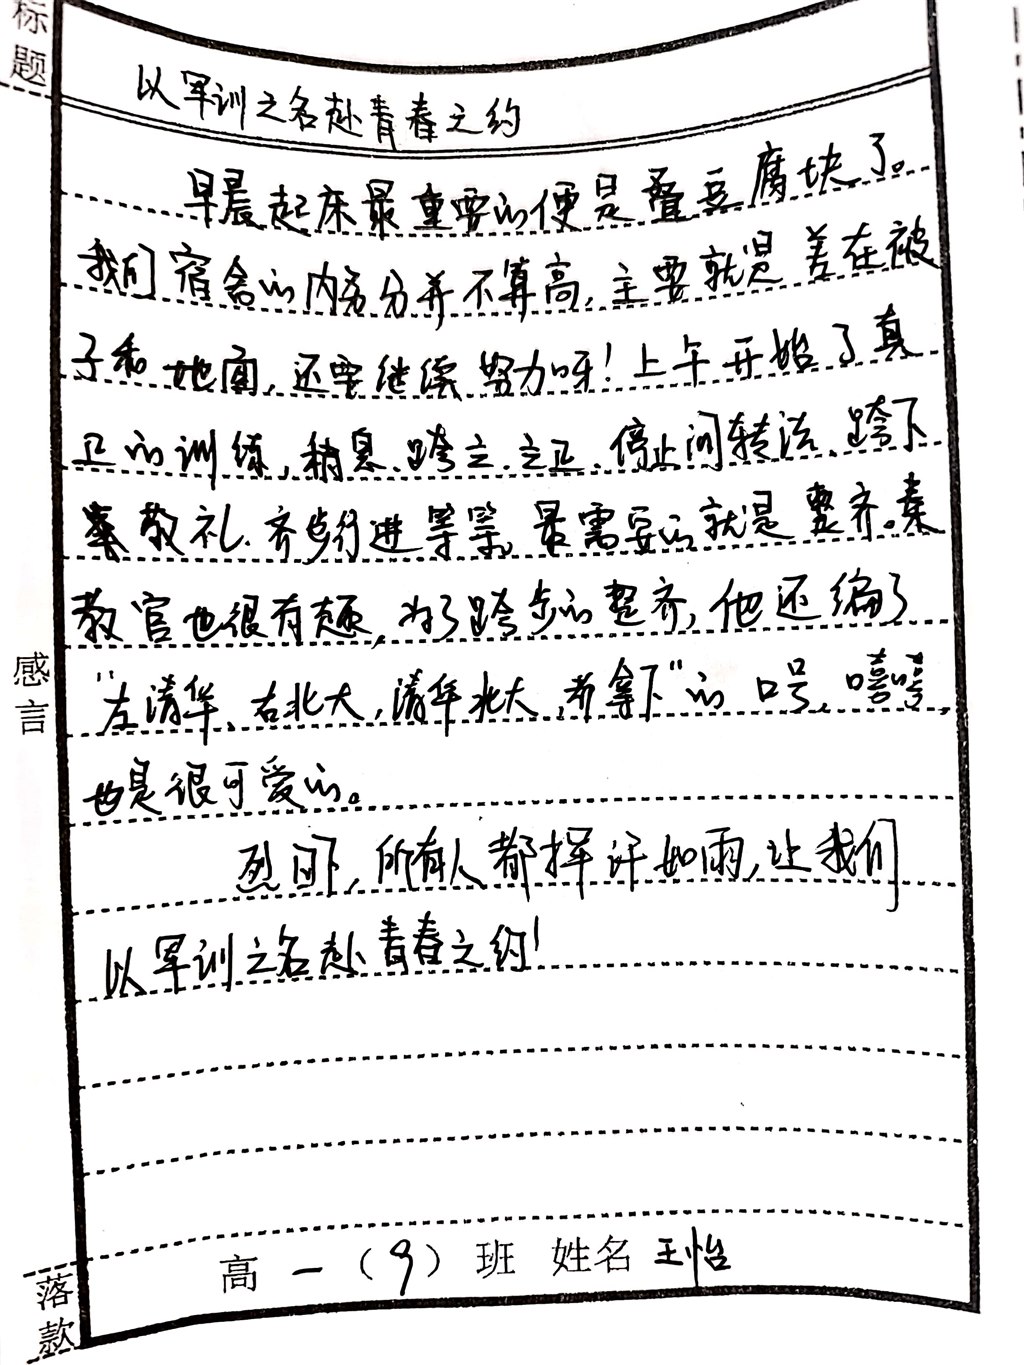 标题
以军训之名赴青春之约
早晨起床最重要的便是叠豆腐块了。
我们宿舍的内务分并不算高,主要就是差在被
子和地面,还要继续努力呀!上午开始了真
正的训练,稍息、跨立、立正、停止间转法、跨下
敬礼、齐步行进等等,最需要的就是整齐。秦
教官也很有趣,为了跨步的整齐,他还编了
“左清华、右北大,清华北大,都拿下”的口号,嘻嘻,
也是很可爱的。
烈日下,所有人都挥汗如雨,让我们
以军训之名赴青春之约!
感言
高一(9)班 姓名 王怡
落款